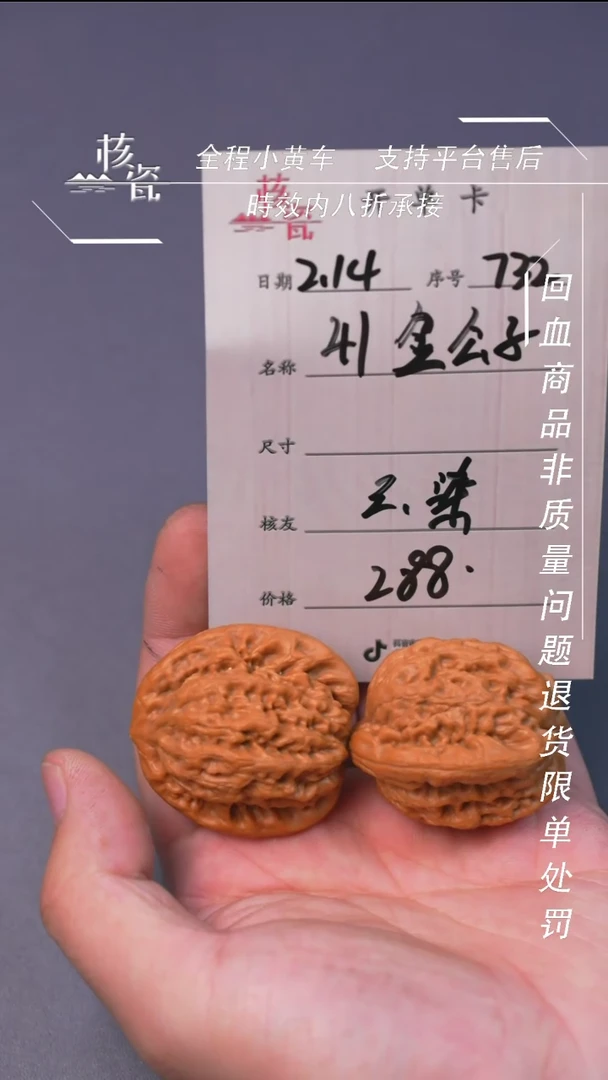 核瓷
全程小黄车 支持平台售后
時效内八折承接
核瓷
开单卡
日期 2.14 序号 732
名称 41金公子
尺寸
核友 三.柒
价格 288.
回血商品非质量问题退货限单处罚